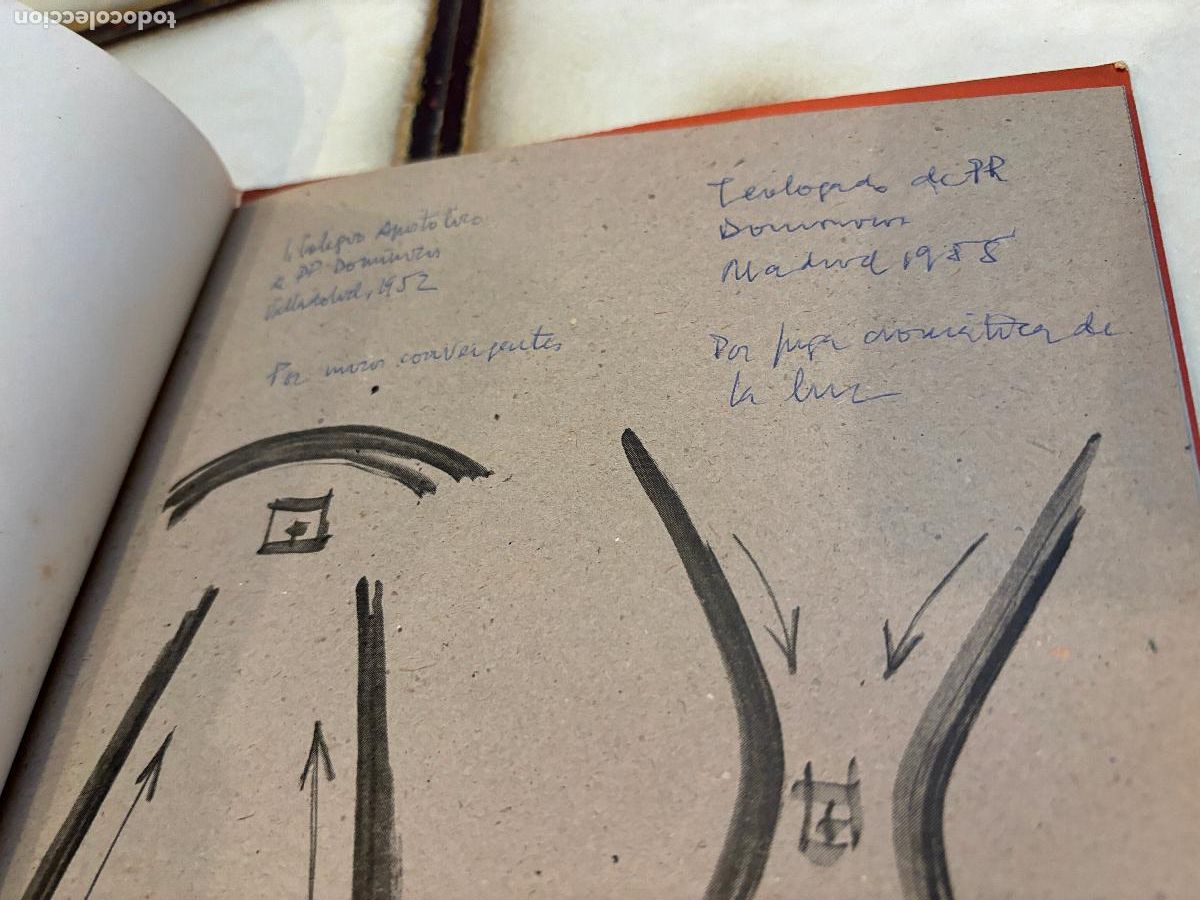 todocoleccion
1, Colegio Apostolico
e PP Dominicos
Valladolid, 1952
Por muros convergentes
Teologado de PP.
Dominicos
Madrid 1955
Por fuga cromática de
la luz